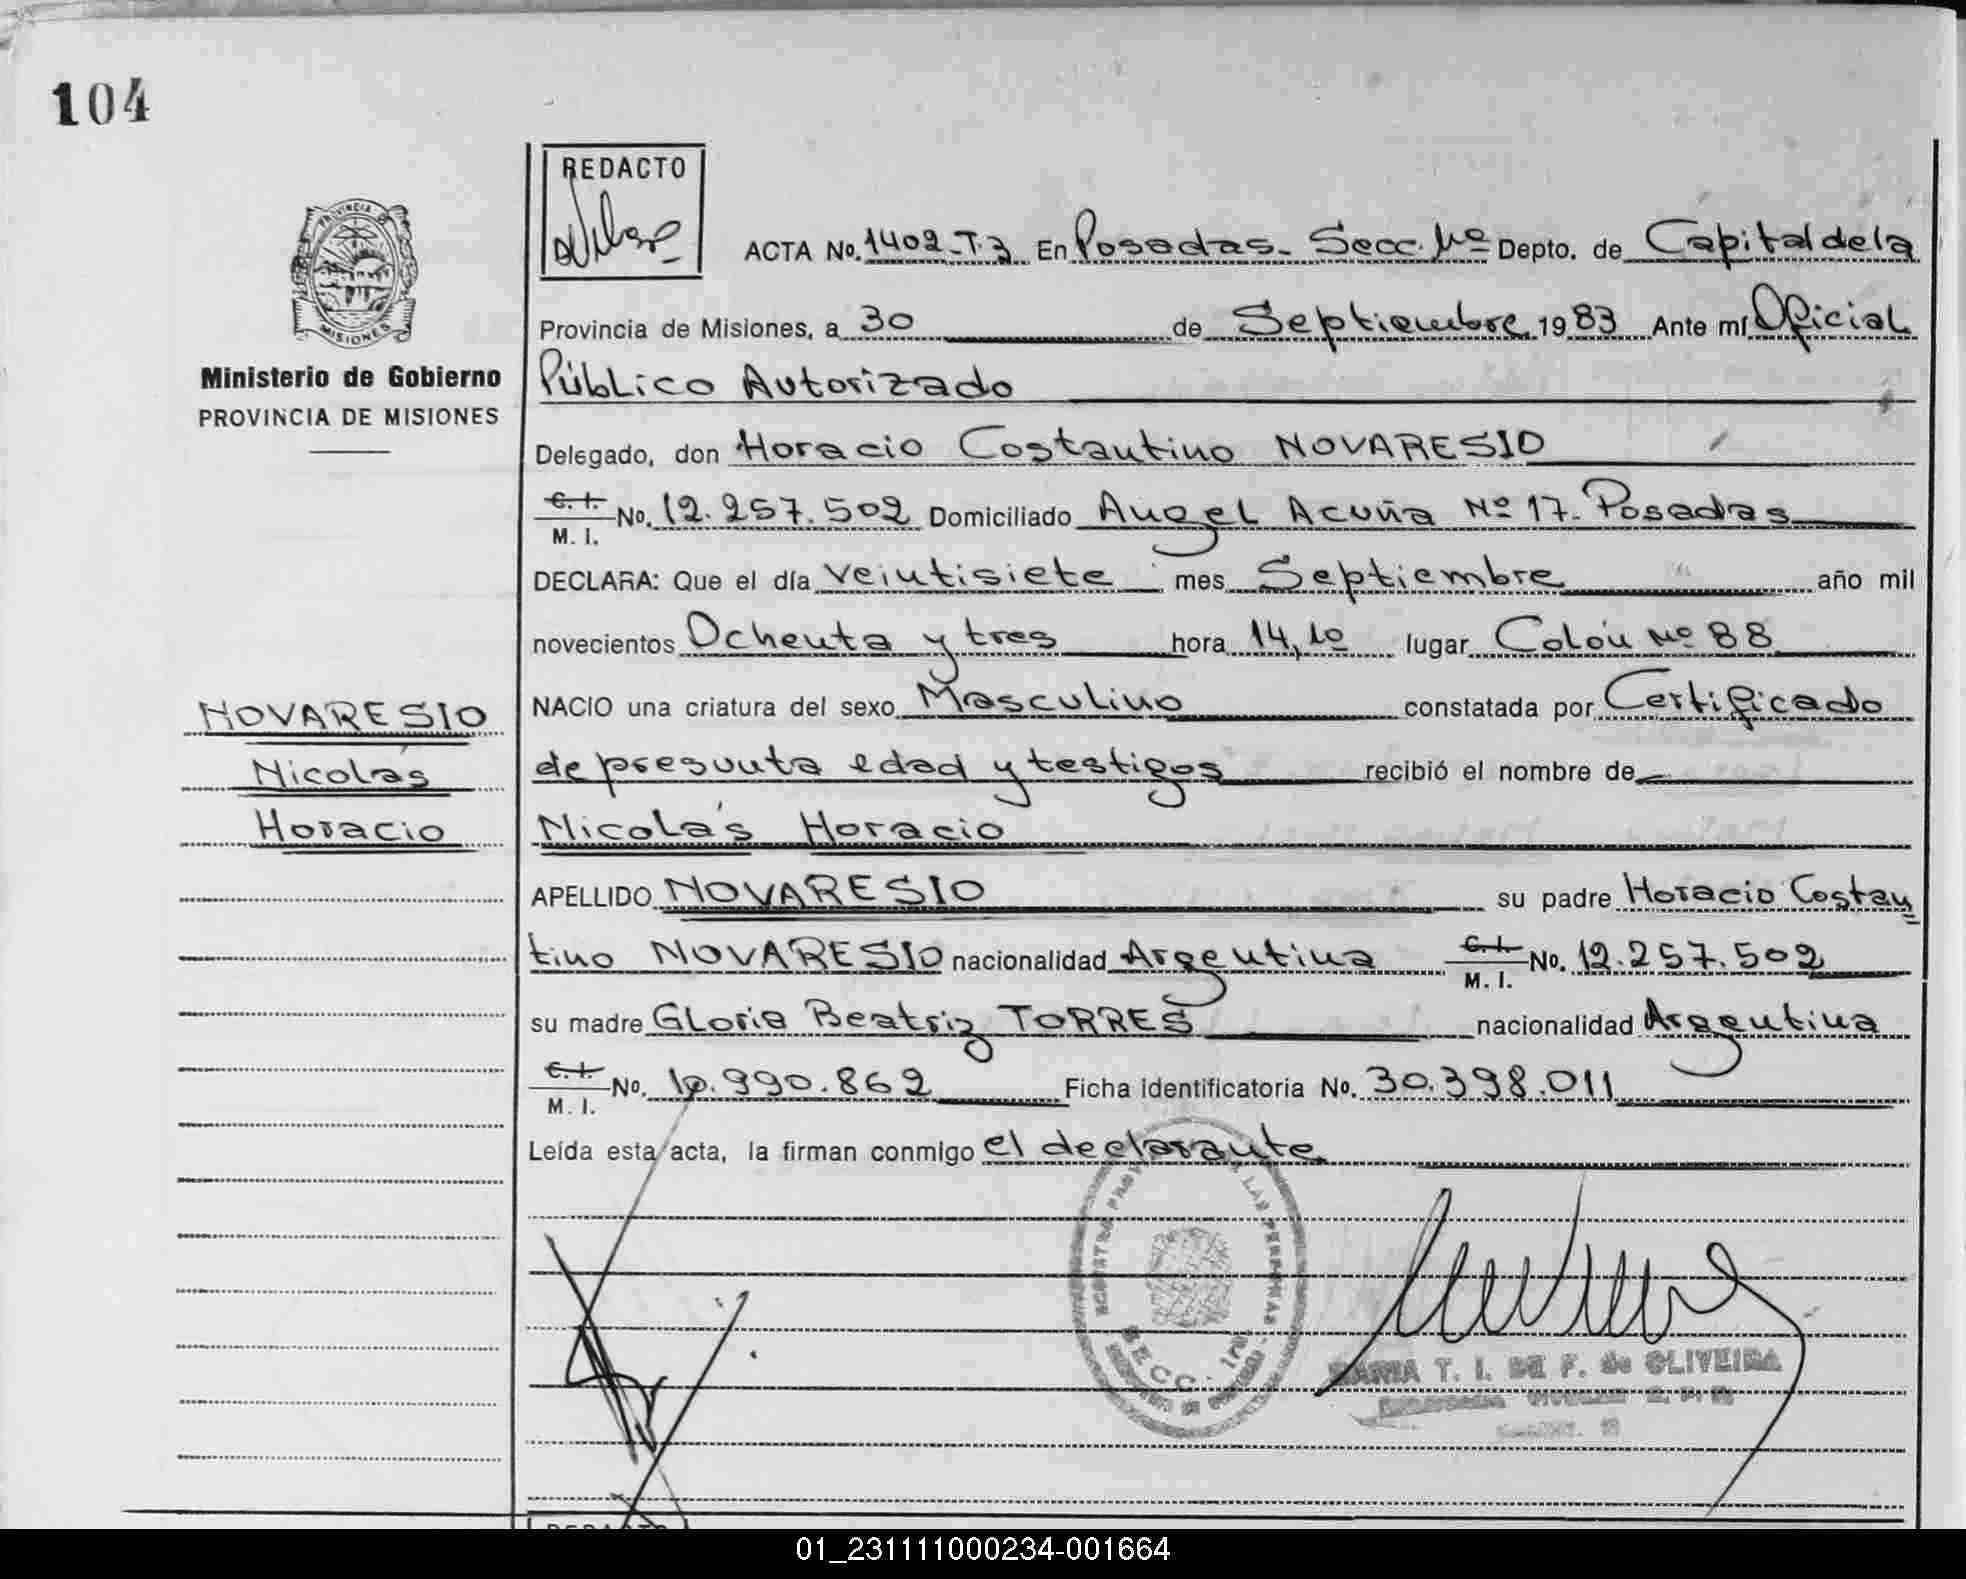 104
REDACTO
PROVINCIA DE
MISIONES
Ministerio de Gobierno
PROVINCIA DE MISIONES
ACTA No. 1402-T.3 En Posadas- Secc. 1ra Depto. de Capital de la
Provincia de Misiones, a 30 de Septiembre 1983 Ante mí Oficial
Público Autorizado
Delegado, don Horacio Costantino NOVARESIO
C. I.
M. I. No. 12.257.502 Domiciliado Angel Acuña Nº 17- Posadas
DECLARA: Que el día veintisiete mes Septiembre año mil
novecientos Ochenta y tres hora 14,10 lugar Colón Nº 88
NACIO una criatura del sexo Masculino constatada por Certificado
de presunta edad y testigos recibió el nombre de
Nicolás Horacio
APELLIDO NOVARESIO su padre Horacio Costan
tino NOVARESIO nacionalidad Argentina C. I.
M. I. No. 12.257.502
su madre Gloria Beatriz TORRES nacionalidad Argentina
C. I.
M. I. No. 10.990.862 Ficha identificatoria No. 30.398.011
Leída esta acta, la firman conmigo el declarante
NOVARESIO
Nicolás
Horacio
LAS PERSONAS
SECC. 1ra
MARIA T. I. DE F. de OLIVEIRA
REDACTO
01_231111000234-001664